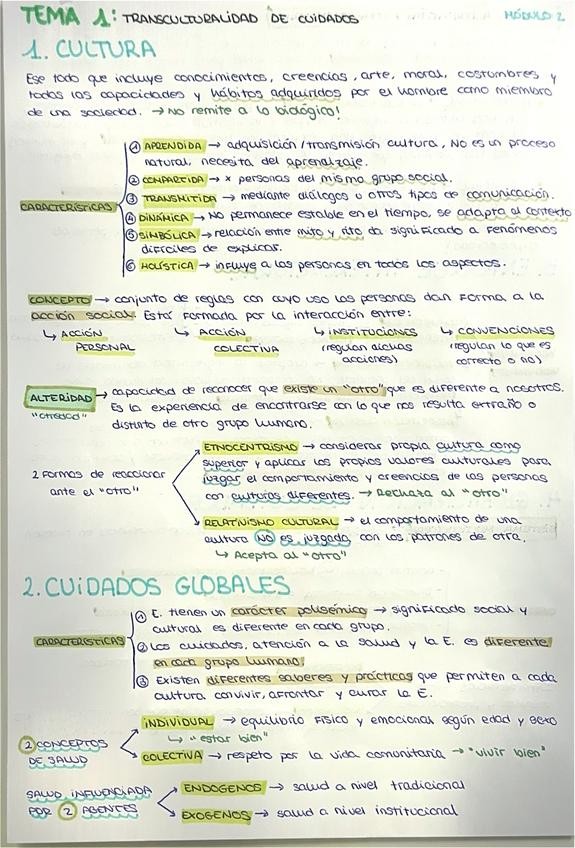 TEMA 1: TRANSCULTURALIDAD DE CUIDADOS MÓDULO 2
1. CULTURA
Ese todo que incluye conocimientos, creencias, arte, moral, costumbres y
todas las capacidades y hábitos adquiridos por el hombre como miembro
de una sociedad. → No remite a lo biológico!
CARACTERÍSTICAS
① APRENDIDA → adquisición/transmisión cultura, No es un proceso
natural, necesita del aprendizaje.
② COMPARTIDA → x personas del mismo grupo social.
③ TRANSMITIDA → mediante diálogos u otros tipos de comunicación.
④ DINÁMICA → No permanece estable en el tiempo, se adapta al contexto
⑤ SIMBÓLICA → relación entre mito y rito da significado a fenómenos
difíciles de explicar.
⑥ HOLÍSTICA → influye a las personas en todos los aspectos.
CONCEPTO → conjunto de reglas con cuyo uso las personas dan forma a la
acción social. Está formada por la interacción entre:
↳ ACCIÓN PERSONAL
↳ ACCIÓN COLECTIVA
↳ INSTITUCIONES (regulan dichas acciones)
↳ CONVENCIONES (regulan lo que es correcto o no)
ALTERIDAD "otredad" → capacidad de reconocer que existe un "otro" que es diferente a nosotros.
Es la experiencia de encontrarse con lo que nos resulta extraño o
distinto de otro grupo humano.
2 formas de reaccionar
ante el "otro"
ETNOCENTRISMO → considerar propia cultura como
superior y aplicar los propios valores culturales para
juzgar el comportamiento y creencias de las personas
con culturas diferentes. → Rechaza al "otro"
RELATIVISMO CULTURAL → el comportamiento de una
cultura NO es juzgada con los patrones de otra.
↳ Acepta al "otro"
2. CUIDADOS GLOBALES
CARACTERÍSTICAS
① E. tienen un carácter polisémico → significado social y
cultural es diferente en cada grupo.
② Los cuidados, atención a la salud y la E. es diferente
en cada grupo humano.
③ Existen diferentes saberes y prácticas que permiten a cada
cultura convivir, afrontar y curar la E.
2 CONCEPTOS
DE SALUD
INDIVIDUAL → equilibrio físico y emocional según edad y sexo
↳ "estar bien"
COLECTIVA → respeto por la vida comunitaria → "vivir bien"
SALUD INFLUENCIADA
POR 2 AGENTES
ENDÓGENOS → salud a nivel tradicional
EXÓGENOS → salud a nivel institucional